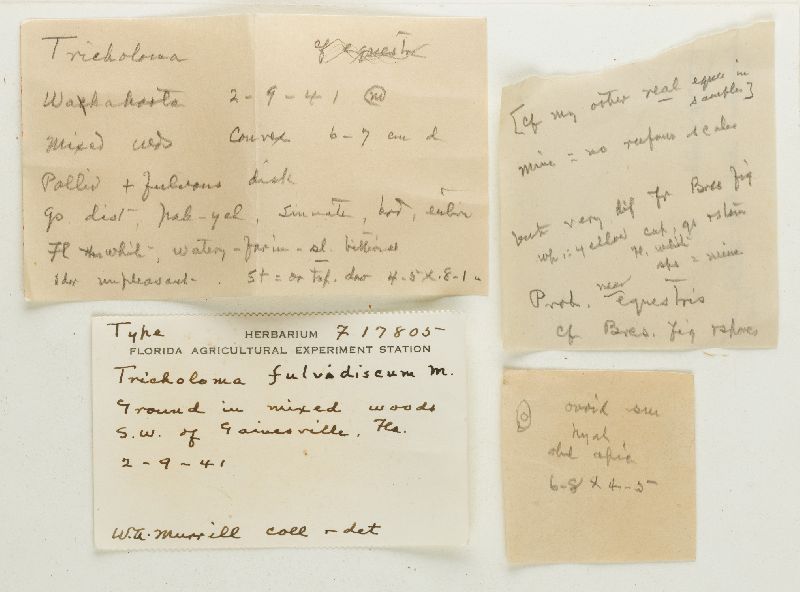 Tricholoma cf equestre
2-9-41 (no)
mixed Convex 6-7 cm d
Pallid + fulvous disk
Gs dist, pale-yel, sinuate, brd, entire
Fl white, watery-farin - sl. bitterish
odor unpleasant. St = or 4-5 x .8-1
[cf my other real eques in samples]
mine = no rufous scales
but very dif fr Bres fig
wh is yellow cap, gs + stem
Fl. white
sps = mine
Prob. near equestris
cf Bres. fig + spores
Type HERBARIUM F 17805
FLORIDA AGRICULTURAL EXPERIMENT STATION
Tricholoma fulvidiscum M.
Ground in mixed woods
S.W. of Gainesville, Fla.
2-9-41
W.A. Murrill coll + det
ovoid sm
hyal
obl apic
6-8 x 4-5